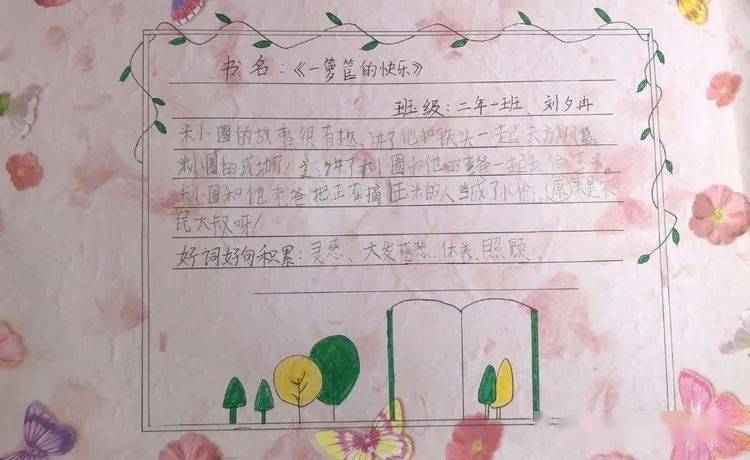 书名：《一箩筐的快乐》
班级：二年一班、刘夕冉
米小圈的故事很有趣，讲了他和铁头一起去放风筝
米小圈的成功了！还讲了米小圈和他的老爸一起去偷玉米。
米小圈和他老爸把正在摘玉米的人当成了小偷，原来是农
民大叔呀！
好词好句积累：灵感、大发慈悲、休养、照顾